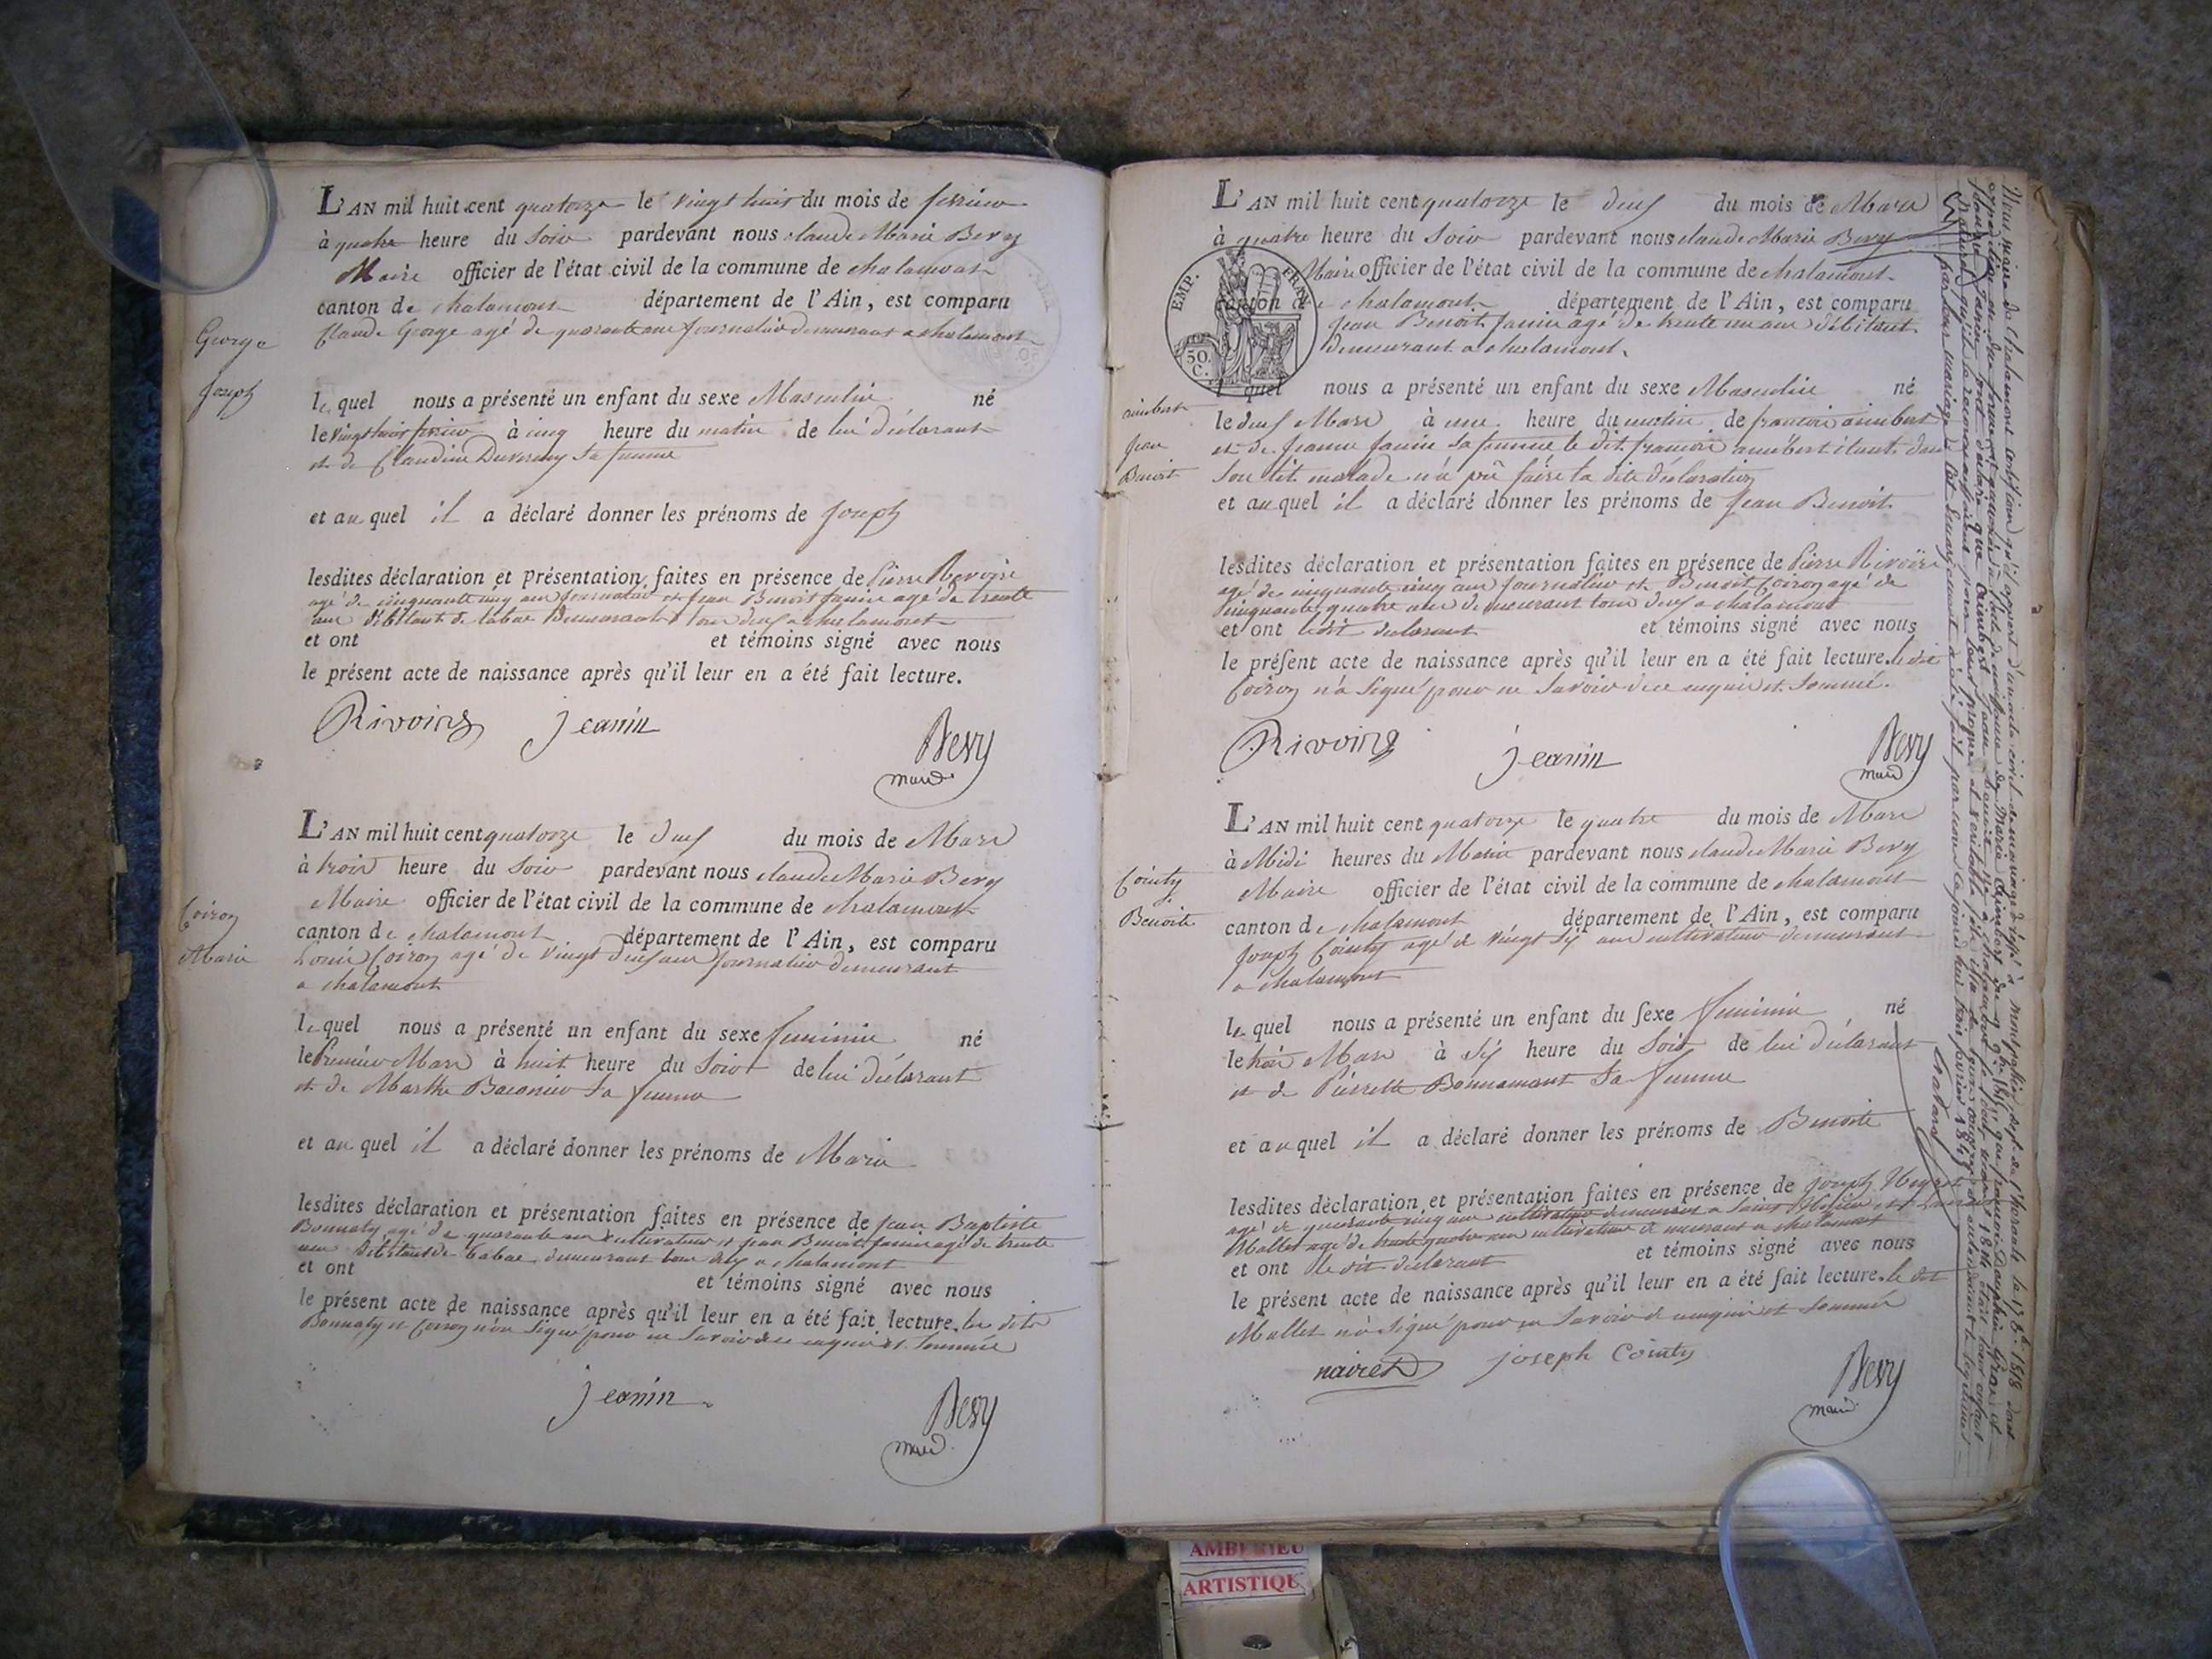 L'AN mil huit cent quatorze le vingt huit du mois de fevrier
à quatre heure du Soir pardevant nous claude Marie Bevy
Maire officier de l'état civil de la commune de chalamont
canton de chalamont département de l'Ain, est comparu
Claude George agé de quarante ans journalier demeurant a chalamont
George
Joseph
le quel nous a présenté un enfant du sexe Masculin né
le vingt huit fevrier à cinq heure du matin de lui déclarant
et de Claudine Duvernay Sa femme
et au quel il a déclaré donner les prénoms de Joseph
lesdites déclaration et présentation faites en présence de Pierre Revoire
agé de cinquante cinq ans journalier et Jean Benoit Janin agé de trente
ans débitant de tabac demeurant tous deux a chalamont
et ont et témoins signé avec nous
le présent acte de naissance après qu'il leur en a été fait lecture.
Rivoire Jeanin Bevy
maire
L'AN mil huit cent quatorze le deux du mois de Mars
à trois heure du Soir pardevant nous claude Marie Bevy
Maire officier de l'état civil de la commune de chalamont
canton de chalamont département de l'Ain, est comparu
Louis Coiron agé de vingt deux ans journalier demeurant
a chalamont
Coiron
Marie
le quel nous a présenté un enfant du sexe feminin né
le Premier Mars à huit heure du Soir de lui déclarant
et de Marthe Baconier Sa femme
et au quel il a déclaré donner les prénoms de Marie
lesdites déclaration et présentation faites en présence de Jean Baptiste
Bonnaty agé de quarante ans cultivateur et jean Benoit Janin agé de trente
ans débitant de tabac demeurant tous deux a chalamont
et ont et témoins signé avec nous
le présent acte de naissance après qu'il leur en a été fait lecture. les dits
Bonnaty et Coiron n'on Signé pour ne Savoir de ce enquis et Sommés
Jeanin Bevy
maire
L'AN mil huit cent quatorze le deux du mois de Mars
à quatre heure du Soir pardevant nous claude Marie Bevy
Maire officier de l'état civil de la commune de chalamont
canton de chalamont département de l'Ain, est comparu
Jean Benoit Janin agé de trente un ans débitant
demeurant a chalamont
EMP. FRAN.
50. C.
aimbert
Jean
Benoit
le quel nous a présenté un enfant du sexe Masculin né
le deux Mars à une heure du matin de francois aimbert
et de Jeanne Janin Sa femme le dit francois aimbert étant dans
Son lit malade n'a pû faire la dite déclaration
et au quel il a déclaré donner les prénoms de Jean Benoit
lesdites déclaration et présentation faites en présence de Pierre Rivoire
agé de cinquante cinq ans journalier et Benoit Coiron agé de
cinquante quatre ans demeurant tous deux a chalamont
et ont ledit declarant et témoins signé avec nous
le présent acte de naissance après qu'il leur en a été fait lecture. le dit
Coiron n'a Signé pour ne Savoir de ce enquis et Sommé.
Rivoire Jeanin Bevy
maire
L'AN mil huit cent quatorze le quatre du mois de Mars
à Midi heures du Matin pardevant nous claude Marie Bevy
Maire officier de l'état civil de la commune de chalamont
canton de chalamont département de l'Ain, est comparu
Joseph Cointy agé de vingt Six ans cultivateur demeurant
a chalamont
Cointy
Benoite
le quel nous a présenté un enfant du sexe feminin né
le trois Mars à Six heure du Soir de lui déclarant
et de Pierrette Bonnamant Sa femme
et au quel il a déclaré donner les prénoms de Benoite
lesdites déclaration et présentation faites en présence de Joseph
agé de quarante cinq ans cultivateur demeurant a Saint
Mallet agé de trente quatre ans cultivateur demeurant a chalamont
et ont le dit déclarant et témoins signé avec nous
le présent acte de naissance après qu'il leur en a été fait lecture. le dit
Mallet n'a Signé pour ne Savoir de enquis et Sommé
naired joseph Cointy Bevy
maire
Nous maire de Chalamont
par leur mariage
AMBERIEU
ARTISTIQUE